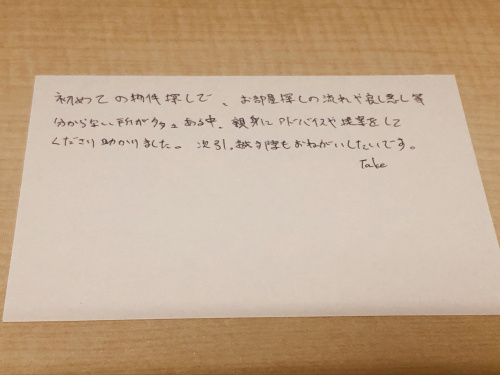 初めての物件探しで、お部屋探しの流れや良し悪し等
分からない所が多々ある中、親身にアドバイスや提案をして
くださり助かりました。次引っ越す際もおねがいしたいです。
Take